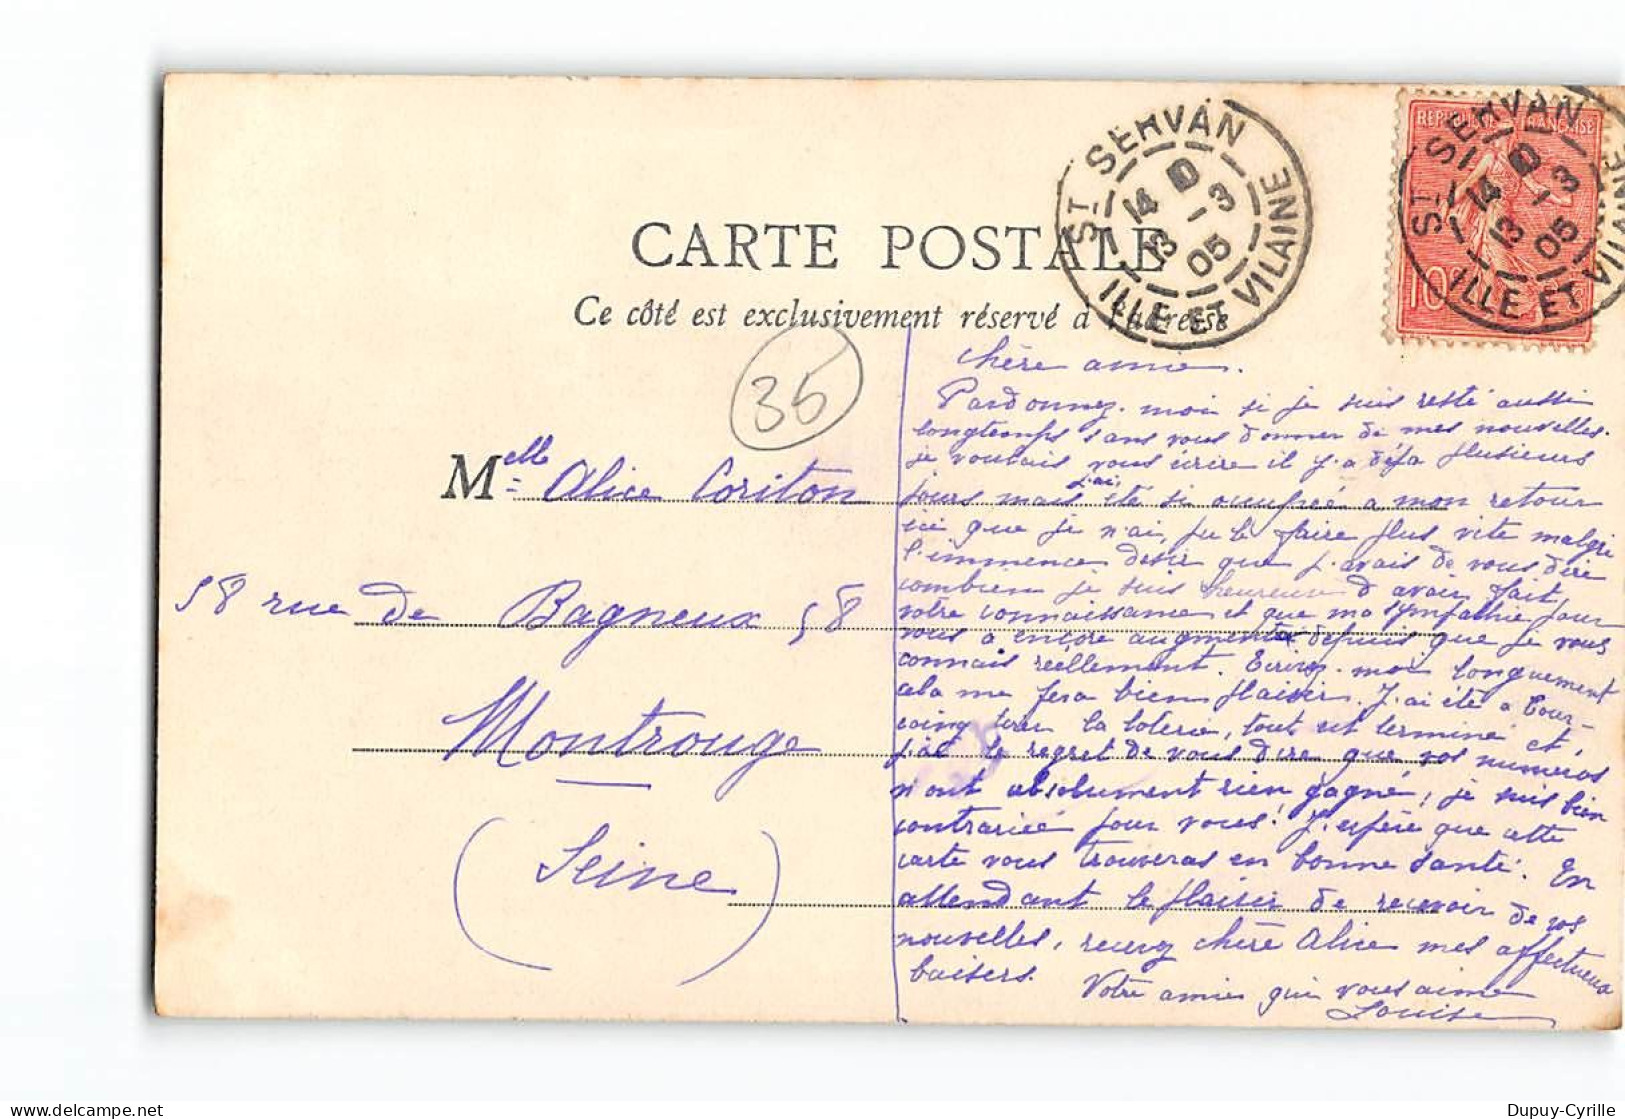 CARTE POSTALE
Ce côté est exclusivement réservé à l'adresse
ST SERVAN
14 D
13 - 3
05
ILLE ET VILAINE
REPUBLIQUE FRANÇAISE
10
ST SERVAN
14 D
13 - 3
05
ILLE ET VILAINE
35
Melle Alice Coriton
58 rue de Bagneux 58
Montrouge
(Seine)
Chère amie.
Pardonnez-moi si je suis resté aussi
longtemps sans vous donner de mes nouvelles.
je voulais vous écrire il y a déja plusieurs
jours mais j'ai été si occupée a mon retour
ici que je n'ai pu le faire plus vite malgré
l'immence desir que j'avais de vous dire
combien je suis heureuse d'avoir fait
votre connaissance et que ma sympathie pour
vous a encore augmenté depuis que je vous
connais réellement. Ecrivez-moi longuement
cela me fera bien plaisir. J'ai été a Tour-
coing tirer la loterie, tout est terminé et,
j'ai le regret de vous dire que vos numéros
n'ont absolument rien gagné, je suis bien
contrariée pour vous! J'espère que cette
carte vous trouveras en bonne santé. En
attendant le plaisir de recevoir de vos
nouvelles, recevez chère Alice mes affectueux
baisers. Votre amie qui vous aime
Louise
Dupuy-Cyrille